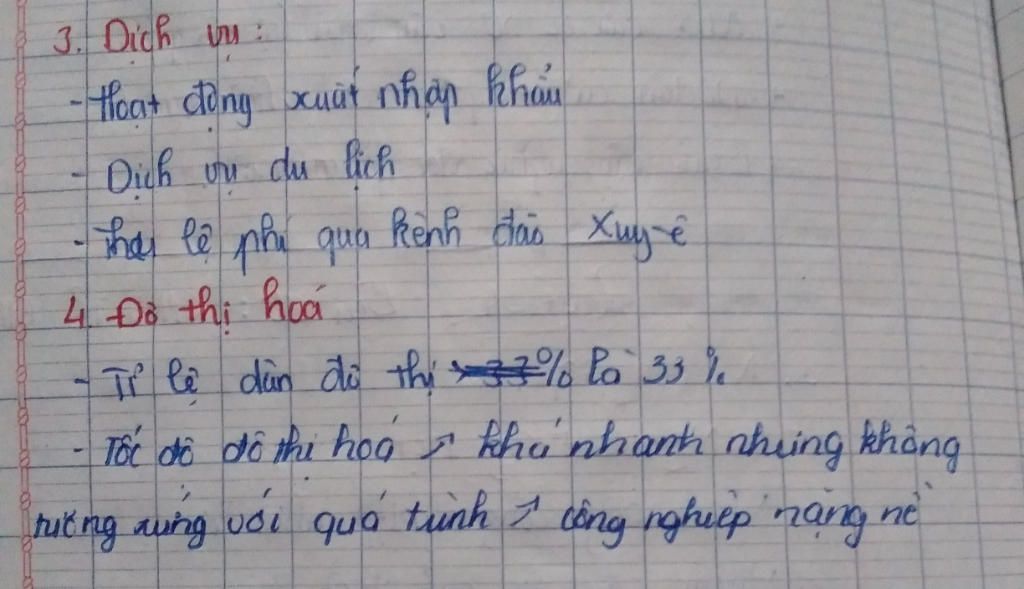 3. Dịch vụ:
- Hoạt động xuất nhập khẩu
- Dịch vụ du lịch
- Thu lệ phí qua kênh đào Xuy-ê
4 Đô thị hoá
- Tỉ lệ dân đô thị 33% là 33%
- Tốc độ đô thị hoá ↗ khá nhanh nhưng không
tương xứng với quá trình ↗ công nghiệp nặng nề